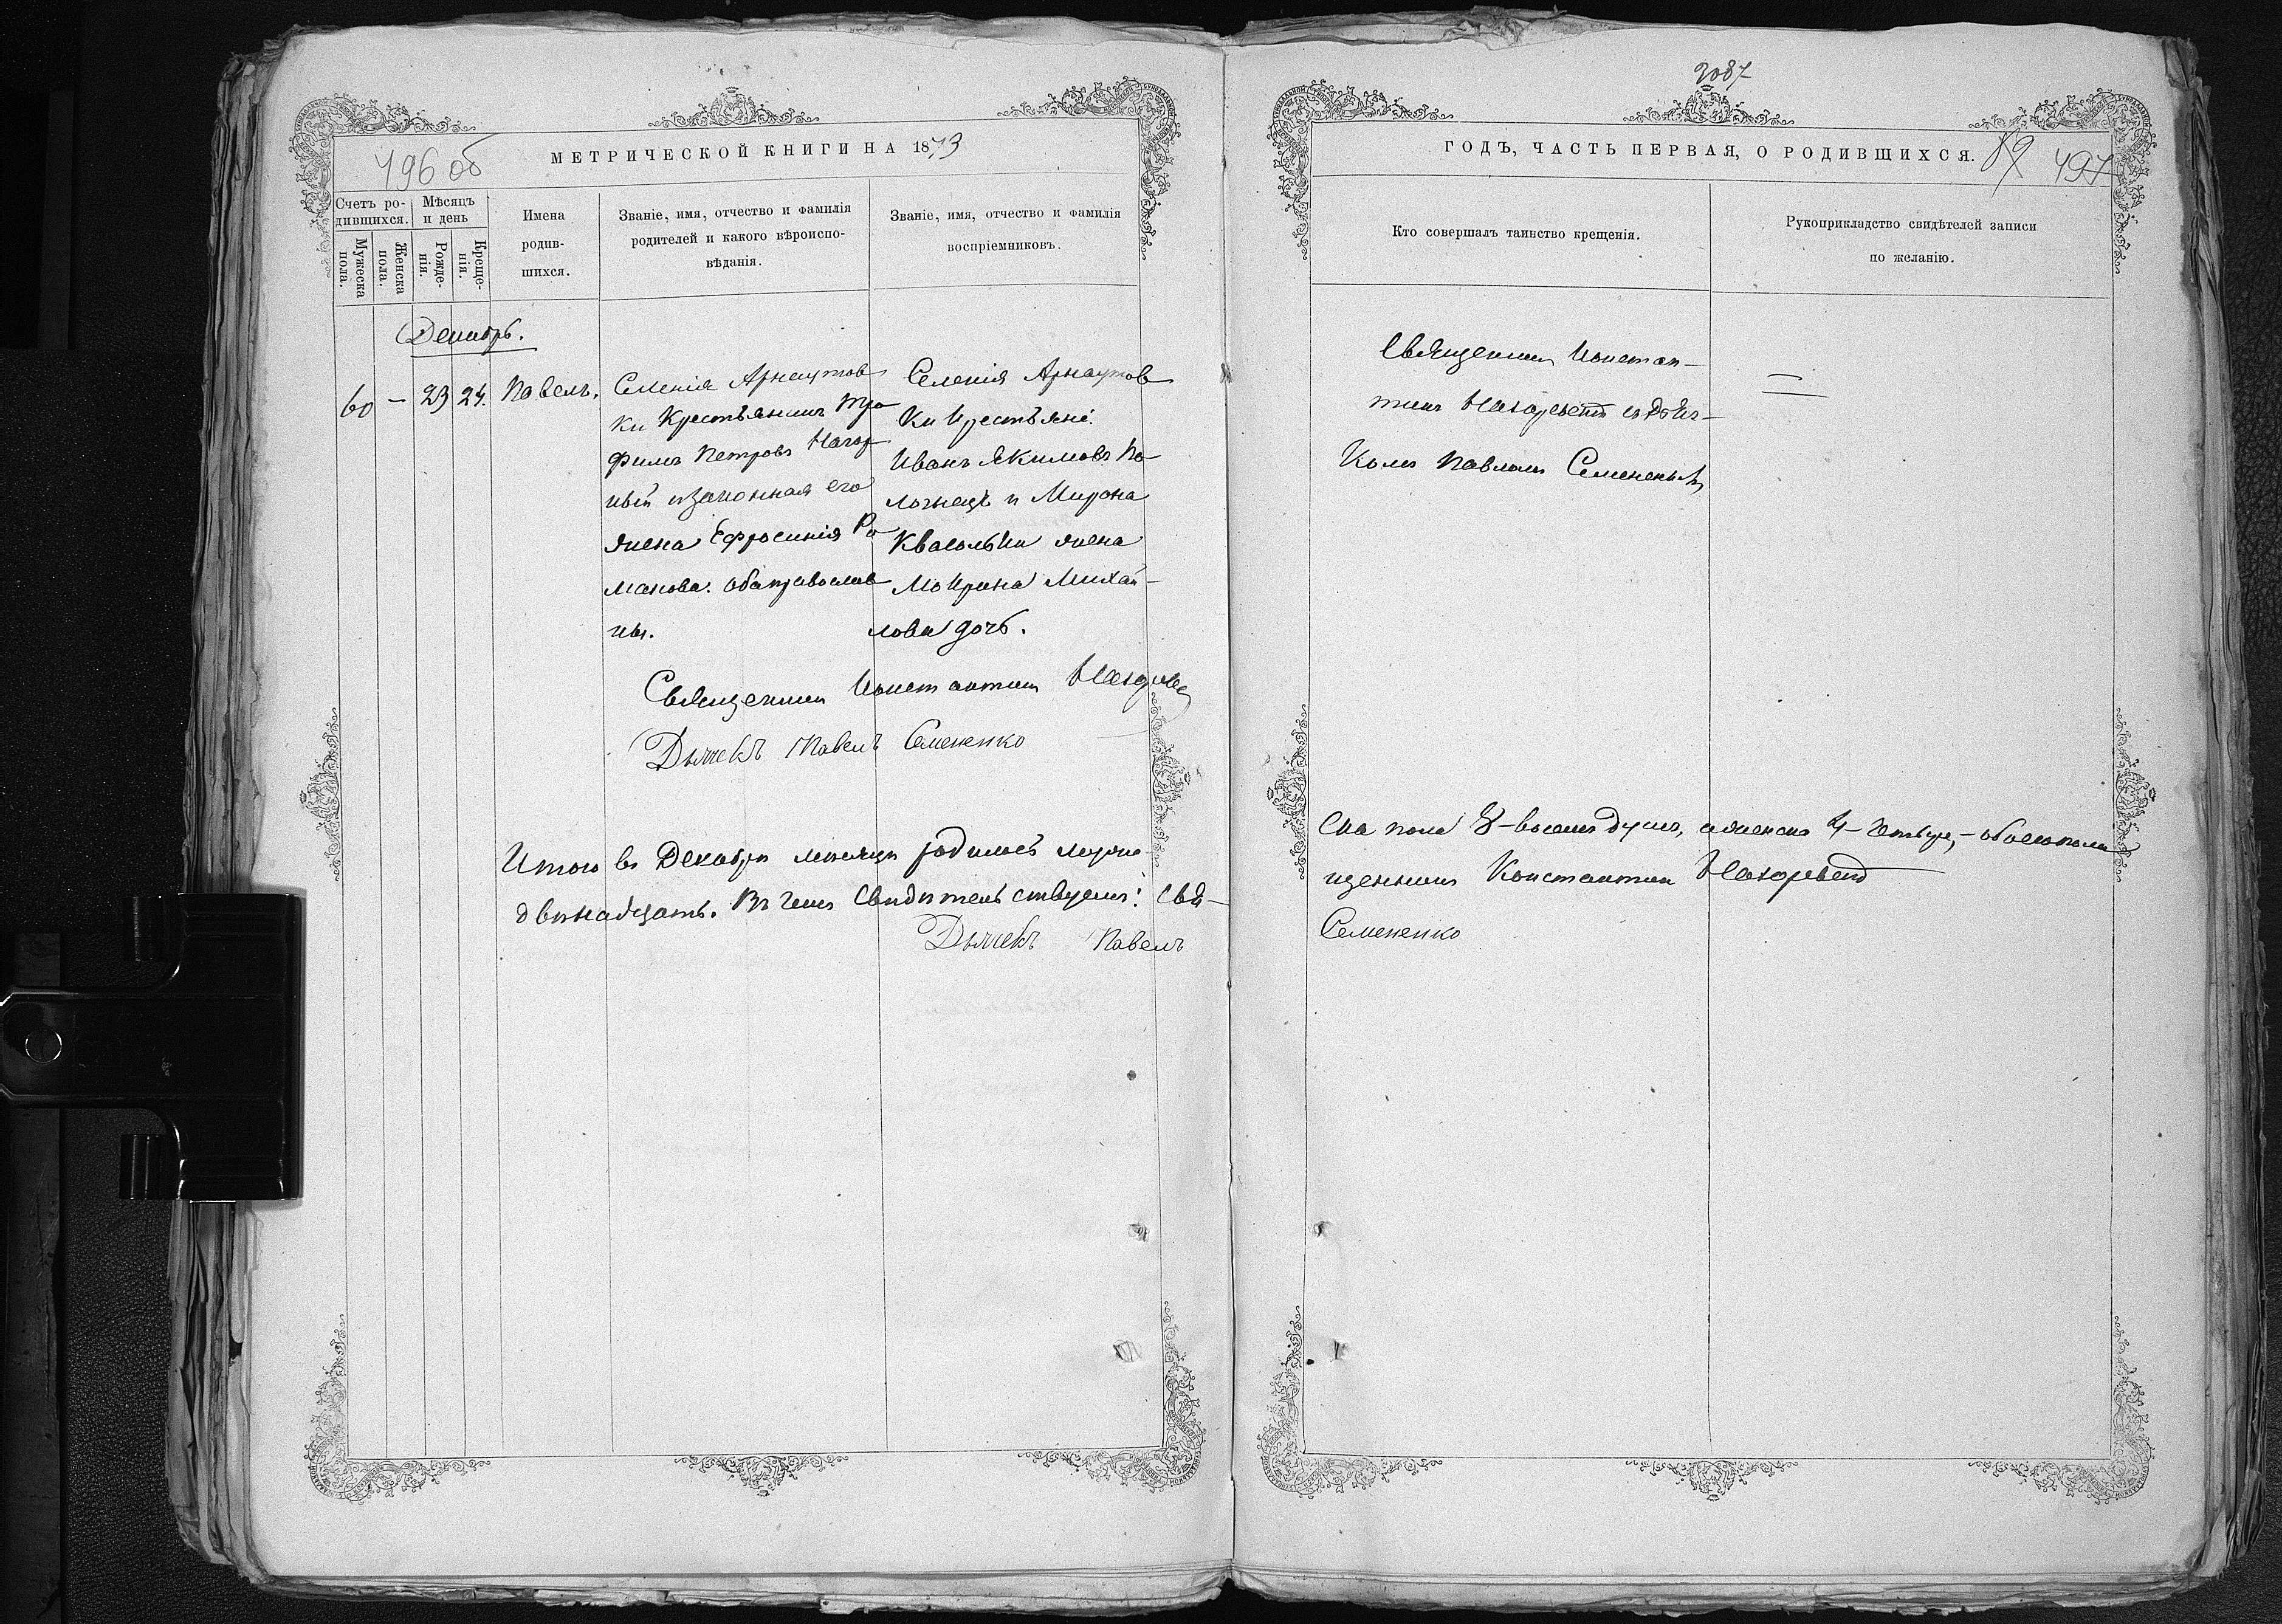 496 об
МЕТРИЧЕСКОЙ КНИГИ НА 1873
Счетъ ро-
дившихся.
Мужеска
пола.
Женска
пола.
Мѣсяцъ
и день
Рожде-
нія.
Креще-
нія.
Имена
родив-
шихся.
Званіе, имя, отчество и фамилія
родителей и какого вѣроиспо-
вѣданія.
Званіе, имя, отчество и фамилія
воспріемниковъ.
Декабрь.
60 - 23 24. Павелъ.
Селенія Арнаутов
ки Крестьянинъ Тро
фимъ Петровъ
и законная его
жена Ефросинія Ро
манова. оба православ
ны.
Селенія Арнаутов
ки Крестьяне:
Иванъ Якимовъ По
лознецъ и Мирона
Квасолѣки жена
Марина Михай-
лова дочь.
Священникъ Константинъ
Дьячекъ Павелъ Семененко
Итого въ Декабрѣ мѣсяцѣ родилось
двѣнадцать. Въ чемъ Свидѣтельствуемъ: Свя-
Дьячекъ Павелъ
2087
ГОДЪ, ЧАСТЬ ПЕРВАЯ, О РОДИВШИХСЯ.
89
497
Кто совершалъ таинство крещенія.
Рукоприкладство свидѣтелей записи
по желанію.
Священникъ Констан-
тинъ Назаревичъ съ Дьяч-
комъ Павломъ Семененкомъ
ска пола 8-восемь душъ, а женска 4-четыре,- обоего пола
щенникъ Константинъ Назаревичъ
Семененко